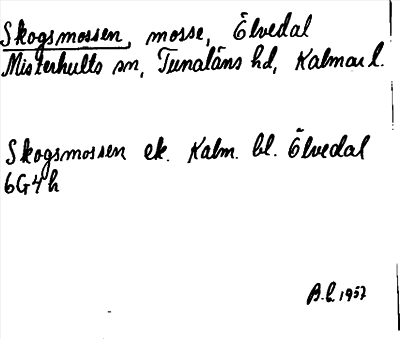 Skogsmossen, mosse, Ölvedal
Misterhults sn, Tunaläns hd, Kalmar l.
Skogsmossen ek. Kalm. bl. Ölvedal
6G4h
B.L. 1957